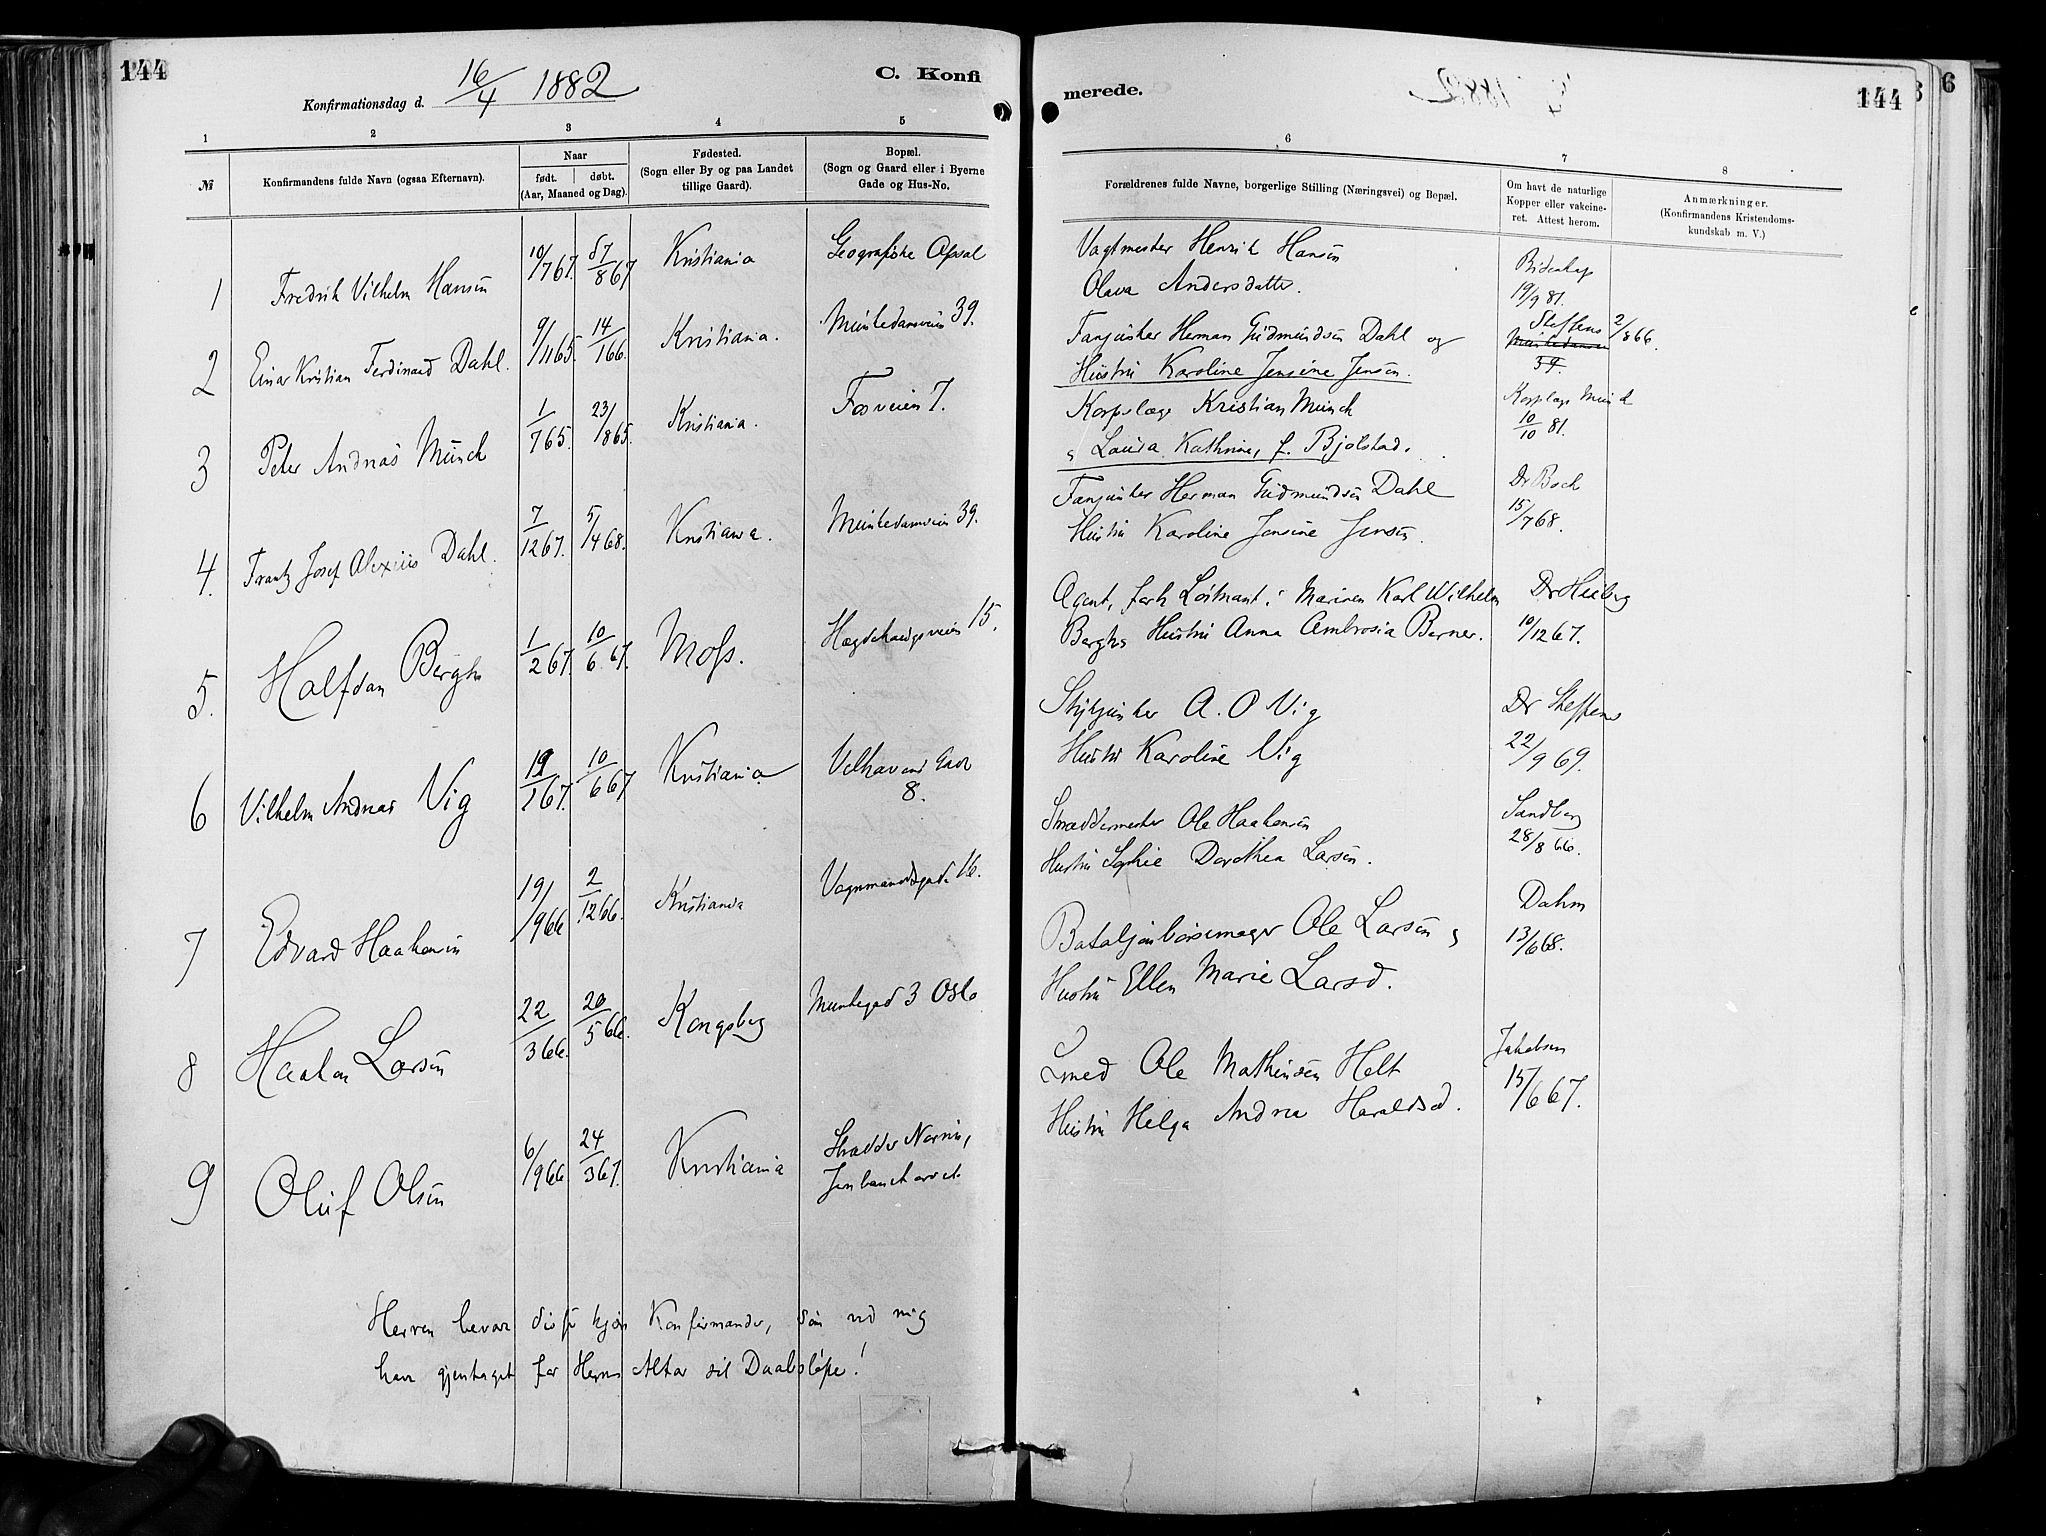 144
Konfirmationsdag d. 16/4 1882
C. Konfi
merede.
144
6
1
2
3
4
5
6
7
8
№
Konfirmandens fulde Navn (ogsaa Efternavn).
Naar
født. døbt.
(Aar, Maaned og Dag).
Fødested.
(Sogn eller By og paa Landet
tillige Gaard).
Bopæl.
(Sogn og Gaard eller i Byerne
Gade og Hus-No.
Forældrenes fulde Navne, borgerlige Stilling (Næringsvei) og Bopæl.
Om havt de naturlige
Kopper eller vakcine-
ret. Attest herom.
Anmærkninger.
(Konfirmandens Kristendoms-
kundskab m. V.)
1 Fredrik Vilhelm Hansen 10/7 67. /8 67 Kristiania Geografiske Opsal
Vagtmester Henrik Hansen
Olava Andersdatter.
Bidenkap
19/9 81.
2 Einar Kristian Ferdinand Dahl. 9/11 65. 14/1 66. Kristiania. Munkedamsveien 39.
Fanjunker Herman Gudmundsen Dahl og
Hustru Karoline Jensine Jensen.
Steffens 2/8 66.
Munkedamsv
39.
3 Peter Andreas Munch 1/7 65. 23/8 65. Kristiania. Fosveien 7.
Korpslæge Kristian Munch
Laura Kathrine, f. Bjølstad.
Korpslæge Munch
10/10 81.
4. Frantz Josef Alexius Dahl. 7/12 67. 5/4 68. Kristiania. Munkedamsveien 39.
Fanjunker Herman Gudmundsen Dahl
Hustru Karoline Jensine Jensen.
Dr Bock
15/7 68.
5. Halfdan Bergh 1/2 67. 10/6 67. Moss. Hægdehaugsveien 15.
Agent, forh Løitnant i Marinen Karl Wilhelm
Berghs Hustru Anna Ambrosia Berner.
Dr Heiberg
10/12 67.
6 Vilhelm Andreas Vig 19/1 67. 10/6 67 Kristiania Velhavens Gade
8.
Stykjunker A. O Vig
Hustru Karoline Vig
Dr Steffens
22/9 69.
7 Edvard Haakensen 19/9 66 2/12 66. Kristiania Vognmandsgade 16.
Skræddermester Ole Haakensen
Hustru Sophie Dorothea Larsen.
Sandberg
28/8 66.
8 Haakon Larsen 22/3 66. 20/5 66. Kongsberg Munkegad 3 Oslo
Bataljonbøssemager Ole Larsen
Hustru Ellen Marie Larsd.
Dahm
13/6 68.
9 Oluf Olsen 6/9 66 24/3 67. Kristiania Skrædder
Smed Ole Mathiesen Helt
Hustru Helga Andrea Haraldsd.
Jakobsen
15/6 67.
Herren bevar disse kjære Konfirmander, som ved mig
have gjentaget for Herrens Altar sit Daabsløfte!